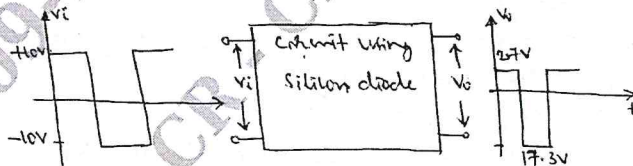 Vi
+10V
-10V
Vi
Circuit using
Silicon diode
Vo
Vo
2.7V
17.3V
t